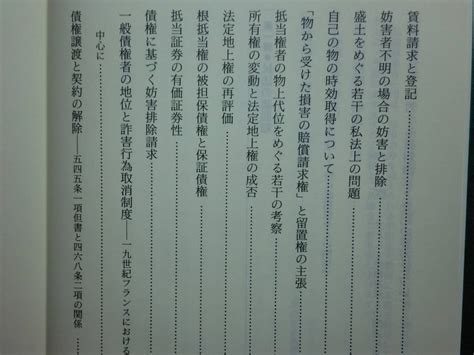 賃料請求と登記
妨害者不明の場合の妨害と排除
盛土をめぐる若干の私法上の問題
自己の物の時効取得について
「物から受けた損害の賠償請求権」と留置権の主張
抵当権者の物上代位をめぐる若干の考察
所有権の変動と法定地上権の成否
法定地上権の再評価
根抵当権の被担保債権と保証債権
抵当証券の有価証券性
債権に基づく妨害排除請求
一般債権者の地位と詐害行為取消制度――一九世紀フランスにおける
中心に
債権譲渡と契約の解除――五四五条一項但書と四六八条二項の関係